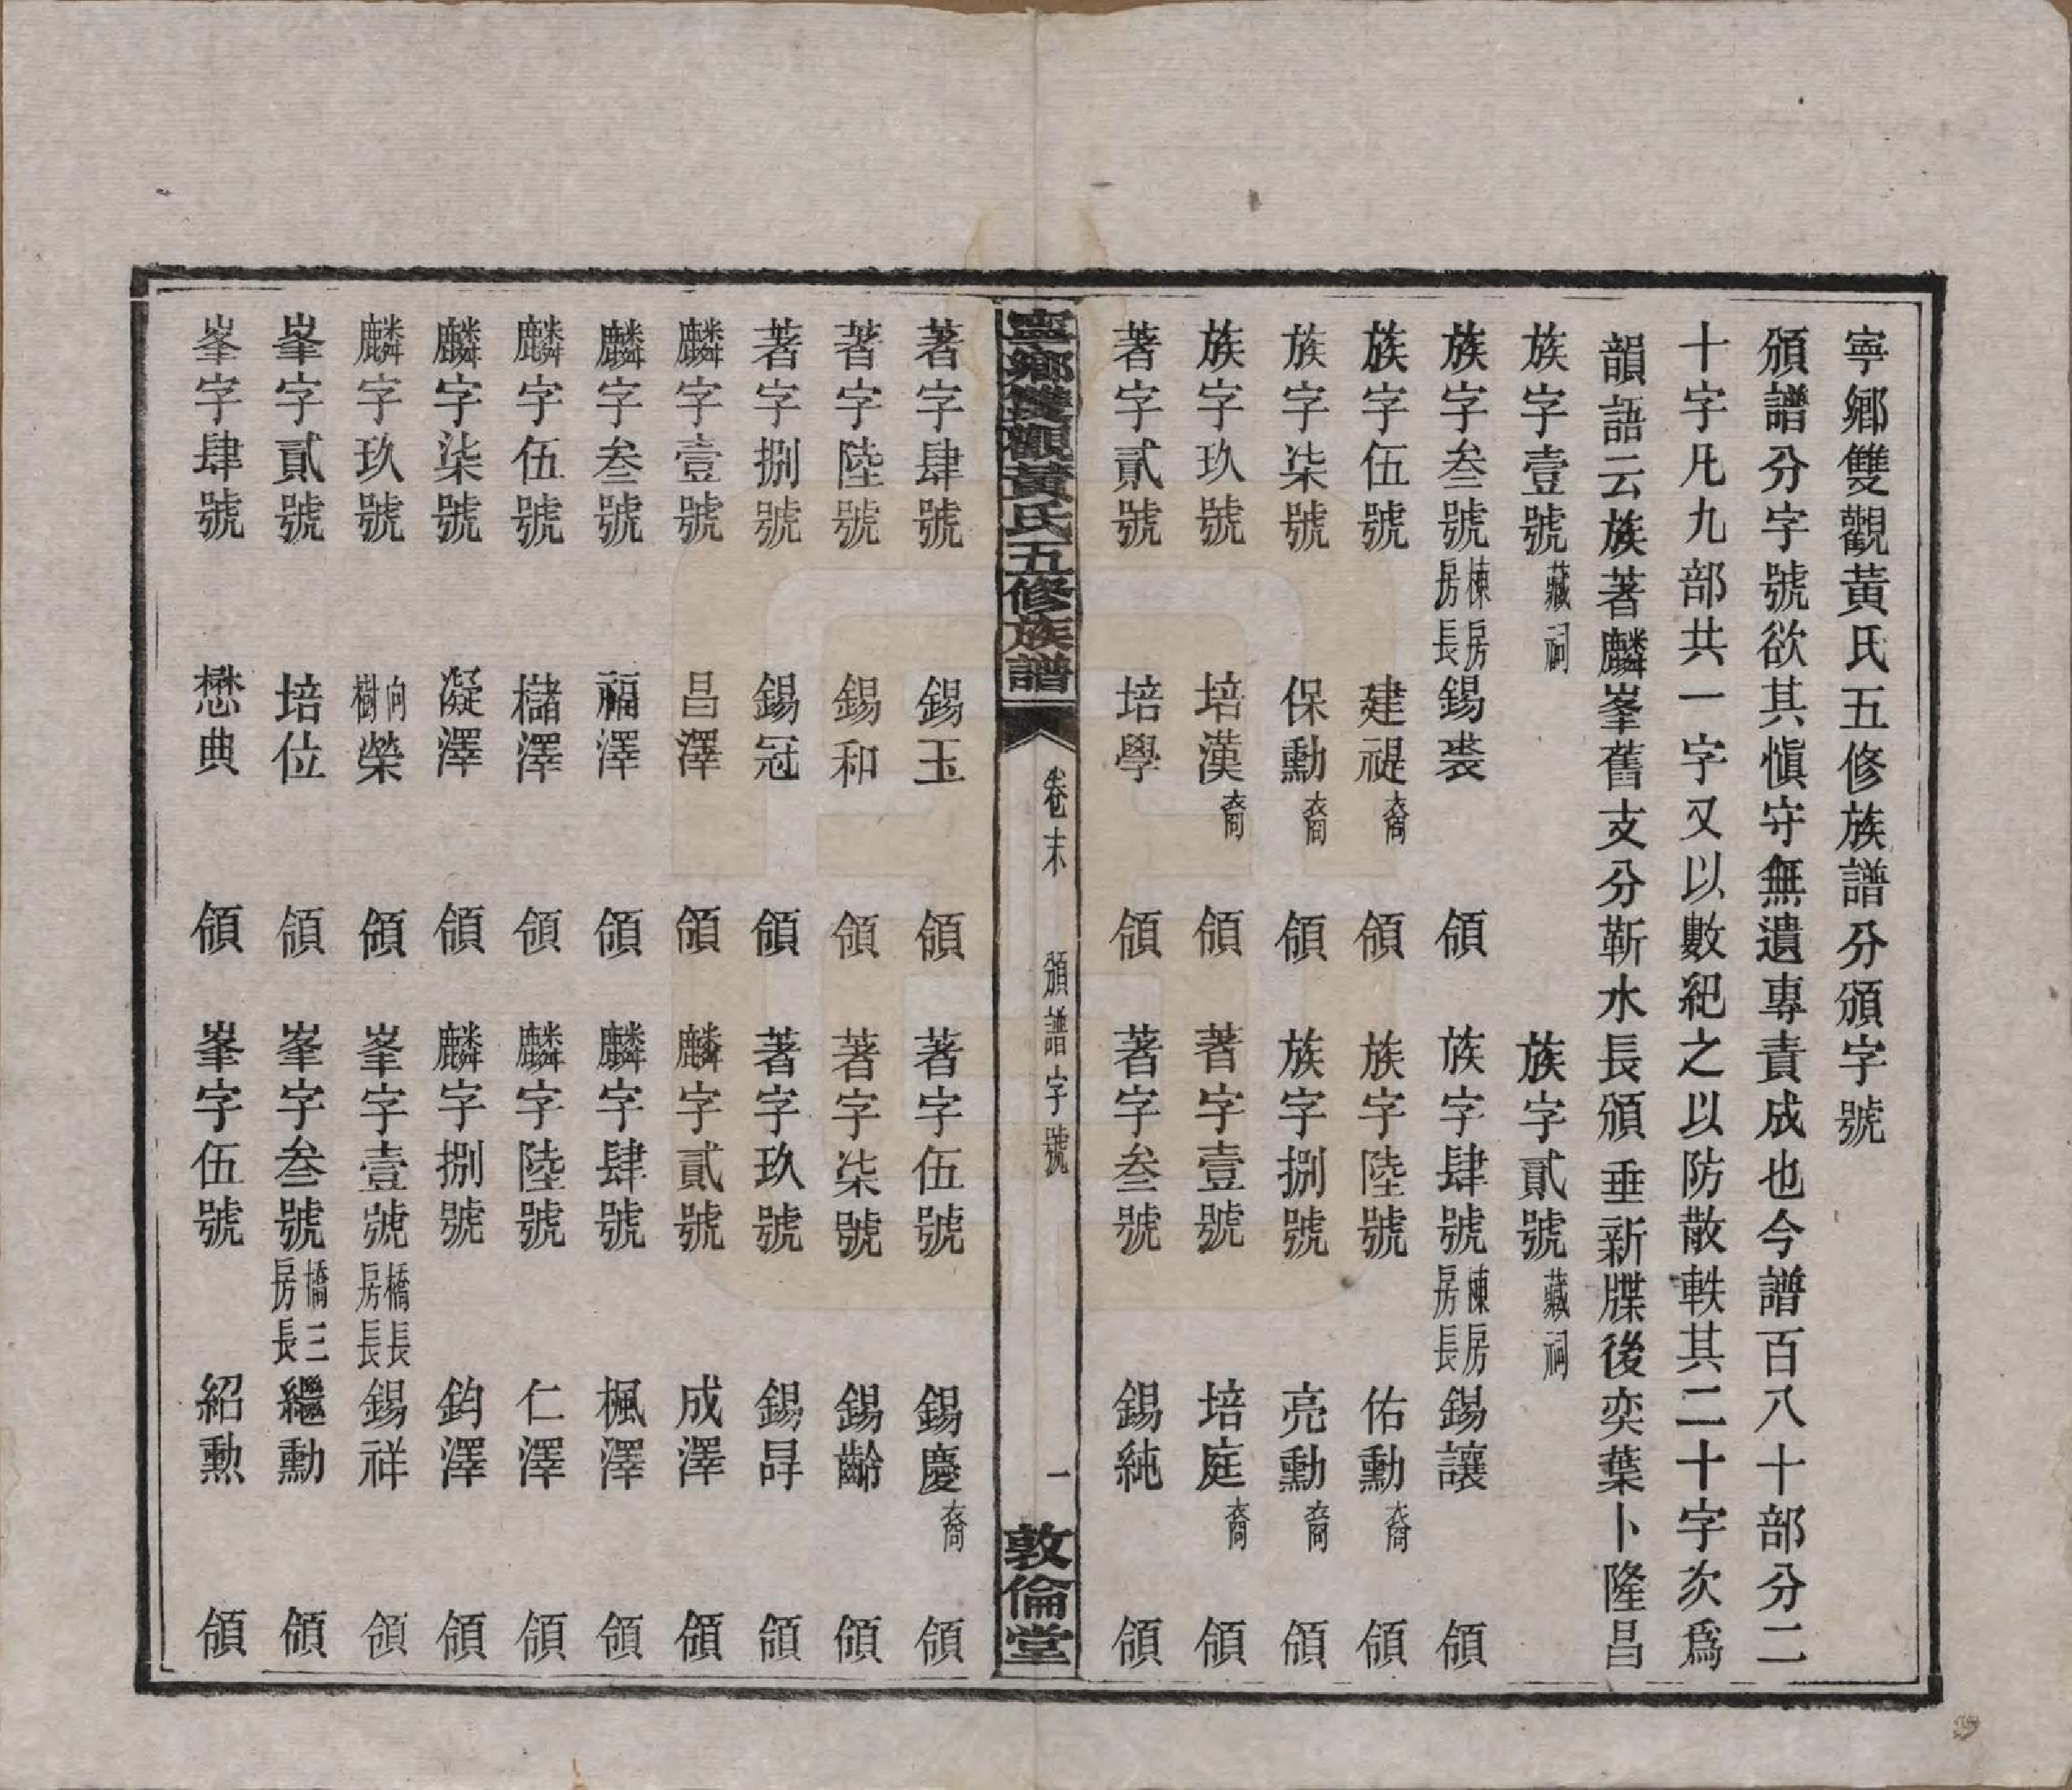 寧鄉雙觀黃氏五修族譜分頒字號
頒譜分字號欲其慎守無遺專責成也今譜百八十部分二
十字凡九部共一字又以數紀之以防散軼其二十字次爲
韻語云族著麟峯舊支分靳水長頒垂新牒後奕葉卜隆昌
族字壹號藏祠 族字貳號藏祠
族字叁號棟房房長錫裘 領 族字肆號棟房房長錫讓 領
族字伍號 建禔裔 領 族字陸號 佑勳裔 領
族字柒號 保勳裔 領 族字捌號 亮勳裔 領
族字玖號 培漢裔 領 著字壹號 培庭裔 領
著字貳號 培學 領 著字叁號 錫純 領
寧鄉雙觀黃氏五修族譜 卷末 頒譜字號 一 敦倫堂
著字肆號 錫玉 領 著字伍號 錫慶裔 領
著字陸號 錫和 領 著字柒號 錫齡 領
著字捌號 錫冠 領 著字玖號 錫㝵 領
麟字壹號 昌澤 領 麟字貳號 成澤 領
麟字叁號 福澤 領 麟字肆號 楓澤 領
麟字伍號 櫧澤 領 麟字陸號 仁澤 領
麟字柒號 凝澤 領 麟字捌號 鈞澤 領
麟字玖號 向樹榮 領 峯字壹號橋長房長錫祥 領
峯字貳號 培位 領 峯字叁號橋三房長繼勳 領
峯字肆號 懋典 領 峯字伍號 紹勲 領